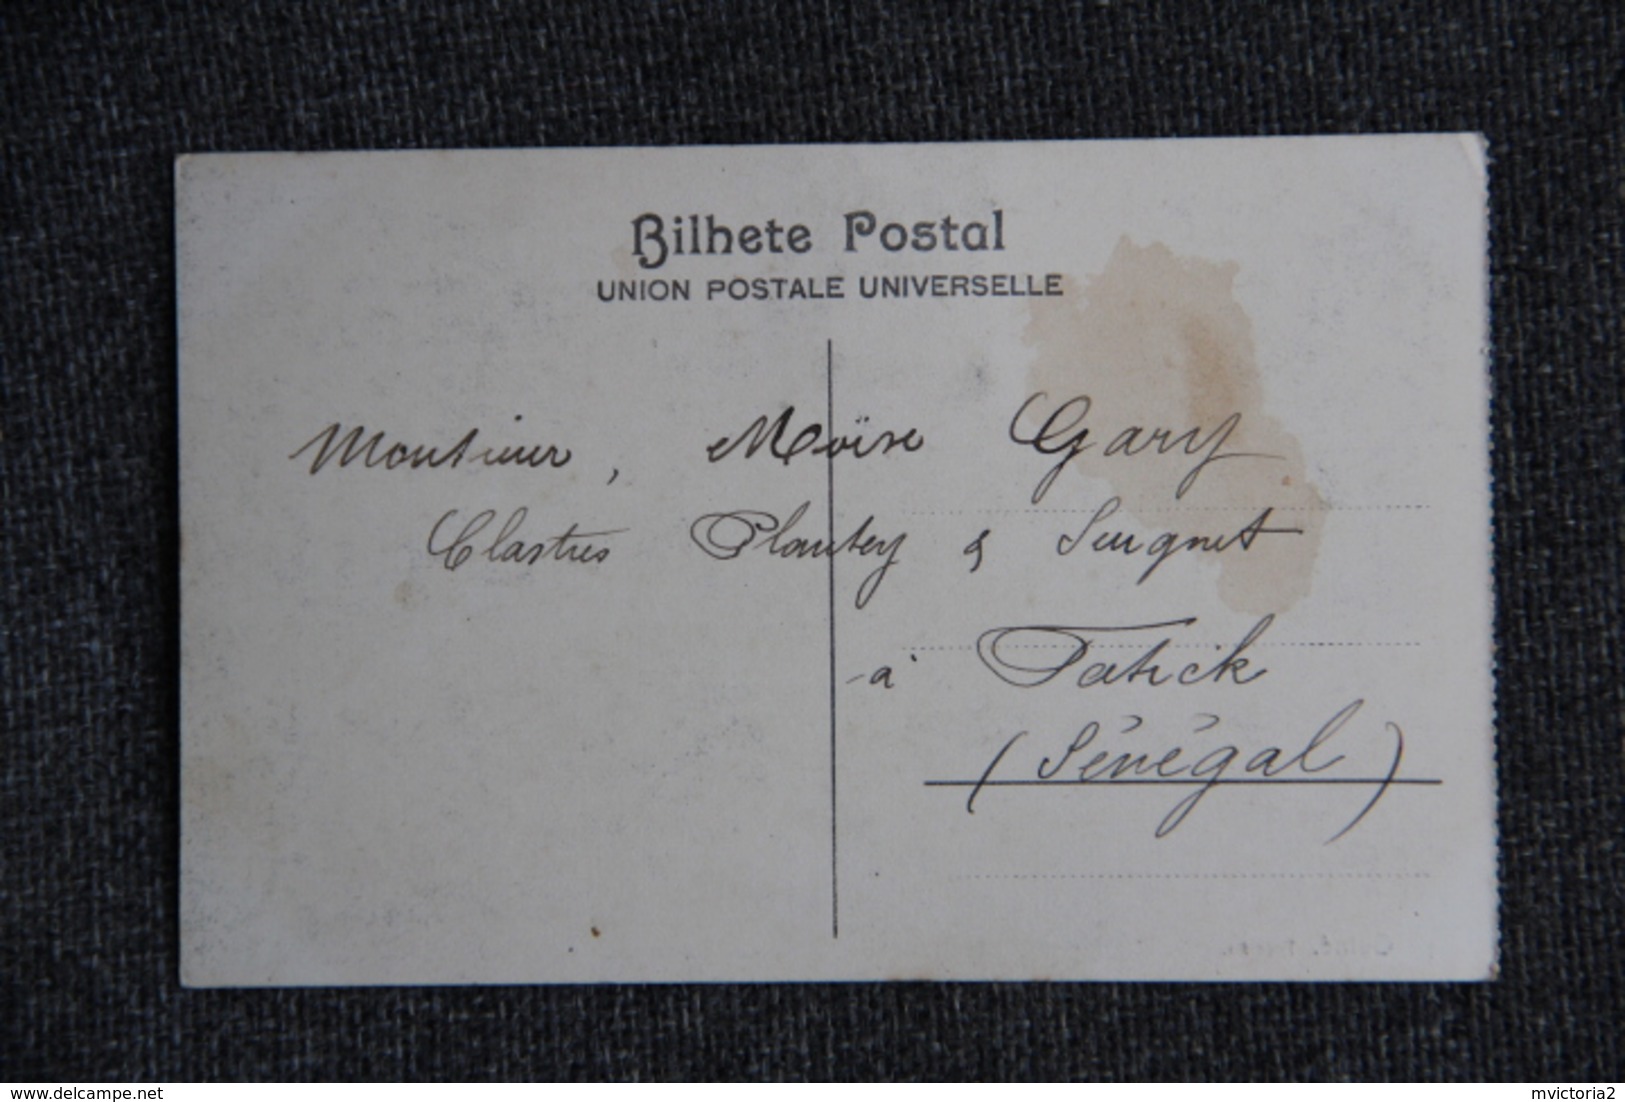 Bilhete Postal
UNION POSTALE UNIVERSELLE
Monsieur, Moïse Gary
Clastres Plantey & Seugnet
à Fatick
(Sénégal)
delcampe.net
mvictoria2